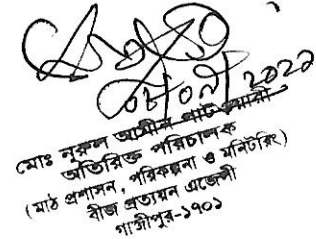 ০৮.০৯.২০২২
মোঃ নূরুল আমীন পাটওয়ারী
অতিরিক্ত পরিচালক
(মাঠ প্রশাসন, পরিকল্পনা ও মনিটরিং)
বীজ প্রত্যয়ন এজেন্সী
গাজীপুর-১৭০১